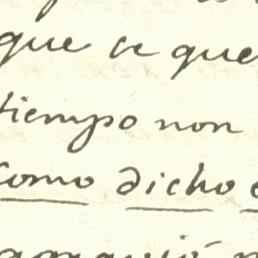 que ce que
tiempo non
como dicho